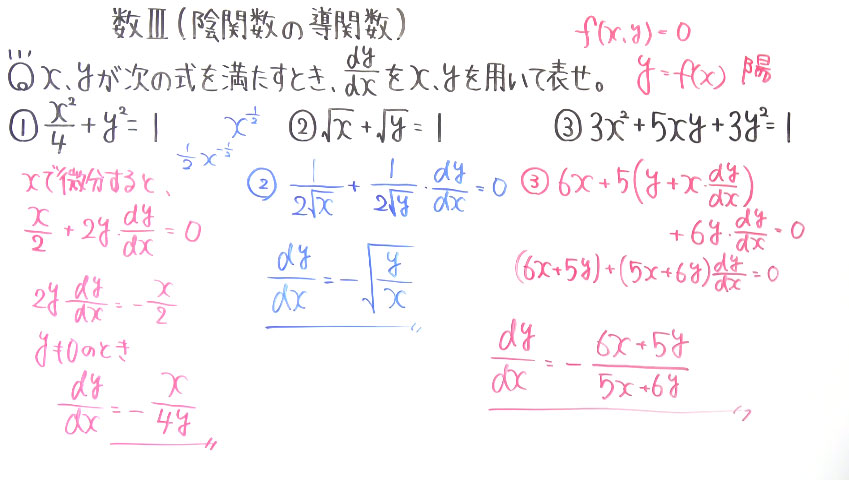 数Ⅲ(陰関数の導関数)
f(x,y)=0
Q x、yが次の式を満たすとき、dy/dxをx、yを用いて表せ。
y=f(x) 陽
① x²/4+y²=1
x^(1/2)
1/2 x^(-1/2)
② √x+√y=1
③ 3x²+5xy+3y²=1
xで微分すると、
x/2+2y·dy/dx=0
2y·dy/dx=-x/2
y≠0のとき
dy/dx=-x/4y
② 1/(2√x)+1/(2√y)·dy/dx=0
dy/dx=-√(y/x)
③ 6x+5(y+x·dy/dx)
+6y·dy/dx=0
(6x+5y)+(5x+6y)dy/dx=0
dy/dx=-(6x+5y)/(5x+6y)